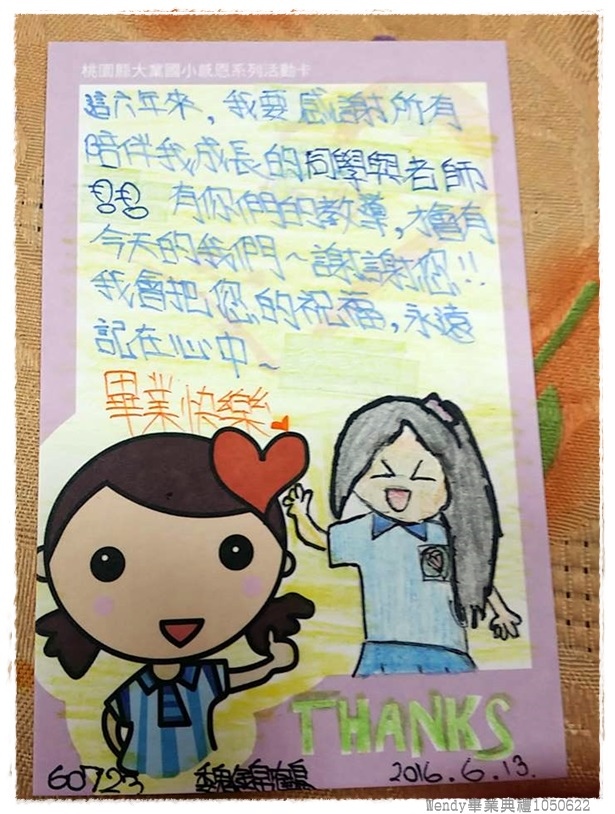 桃園縣大業國小感恩系列活動卡
這六年來，我要感謝所有
陪伴我成長的同學與老師
有你們的教導，才會有
今天的我們～謝謝您!!
我會把您的祝福，永遠
記在心中～
畢業快樂
THANKS
60723
2016.6.13.
Wendy畢業典禮1050622